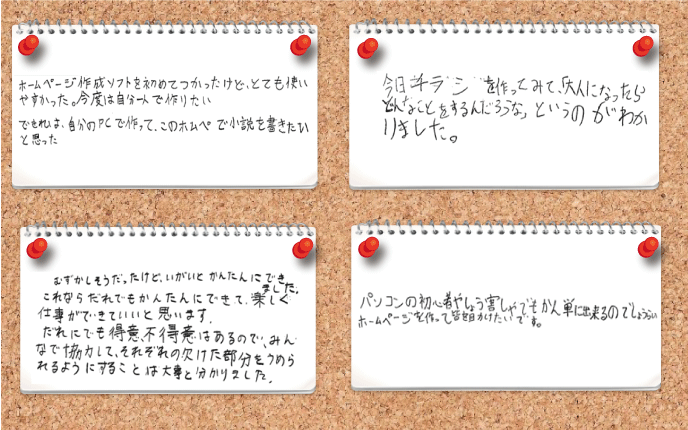 ホームページ作成ソフトを初めてつかったけど、とても使い
やすかった。今度は自分一人で作りたい
できれば、自分のPCで作って、このホムペで小説を書きたい
と思った
今日チラシを作ってみて、「大人になったら
どんなことをするんだろうな」というのがわか
りました。
むずかしそうだったけど、いがいとかんたんにでき
ました。
これならだれでもかんたんにできて、楽しく
仕事ができていいと思います。
だれにでも得意、不得意はあるので、みん
なで協力して、それぞれの欠けた部分をうめら
れるようにすることは大事と分かりました。
パソコンの初心者やしょう害しゃでもかん単に出来るのでしょうらい
ホームページを作って